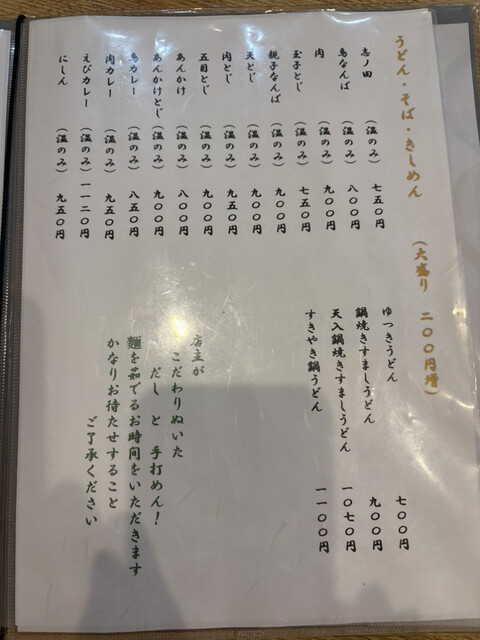 うどん・そば・きしめん (大盛り 二〇〇円増)
志ノ田 (温のみ) 七五〇円
鳥なんば (温のみ) 八〇〇円
肉 (温のみ) 九〇〇円
玉子とじ (温のみ) 七五〇円
親子なんば (温のみ) 九〇〇円
天とじ (温のみ) 九〇〇円
肉とじ (温のみ) 九五〇円
五目とじ (温のみ) 九〇〇円
あんかけ (温のみ) 八〇〇円
あんかけとじ (温のみ) 九〇〇円
鳥カレー (温のみ) 八五〇円
肉カレー (温のみ) 九五〇円
えびカレー (温のみ) 一一二〇円
にしん (温のみ) 九五〇円
ゆつきうどん 七〇〇円
鍋焼きすましうどん 九〇〇円
天入鍋焼きすましうどん 一〇七〇円
すきやき鍋うどん 一一〇〇円
店主が
こだわりぬいた
だし と 手打めん!
麺を茹でるお時間をいただきます
かなりお待たせすること
ご了承ください